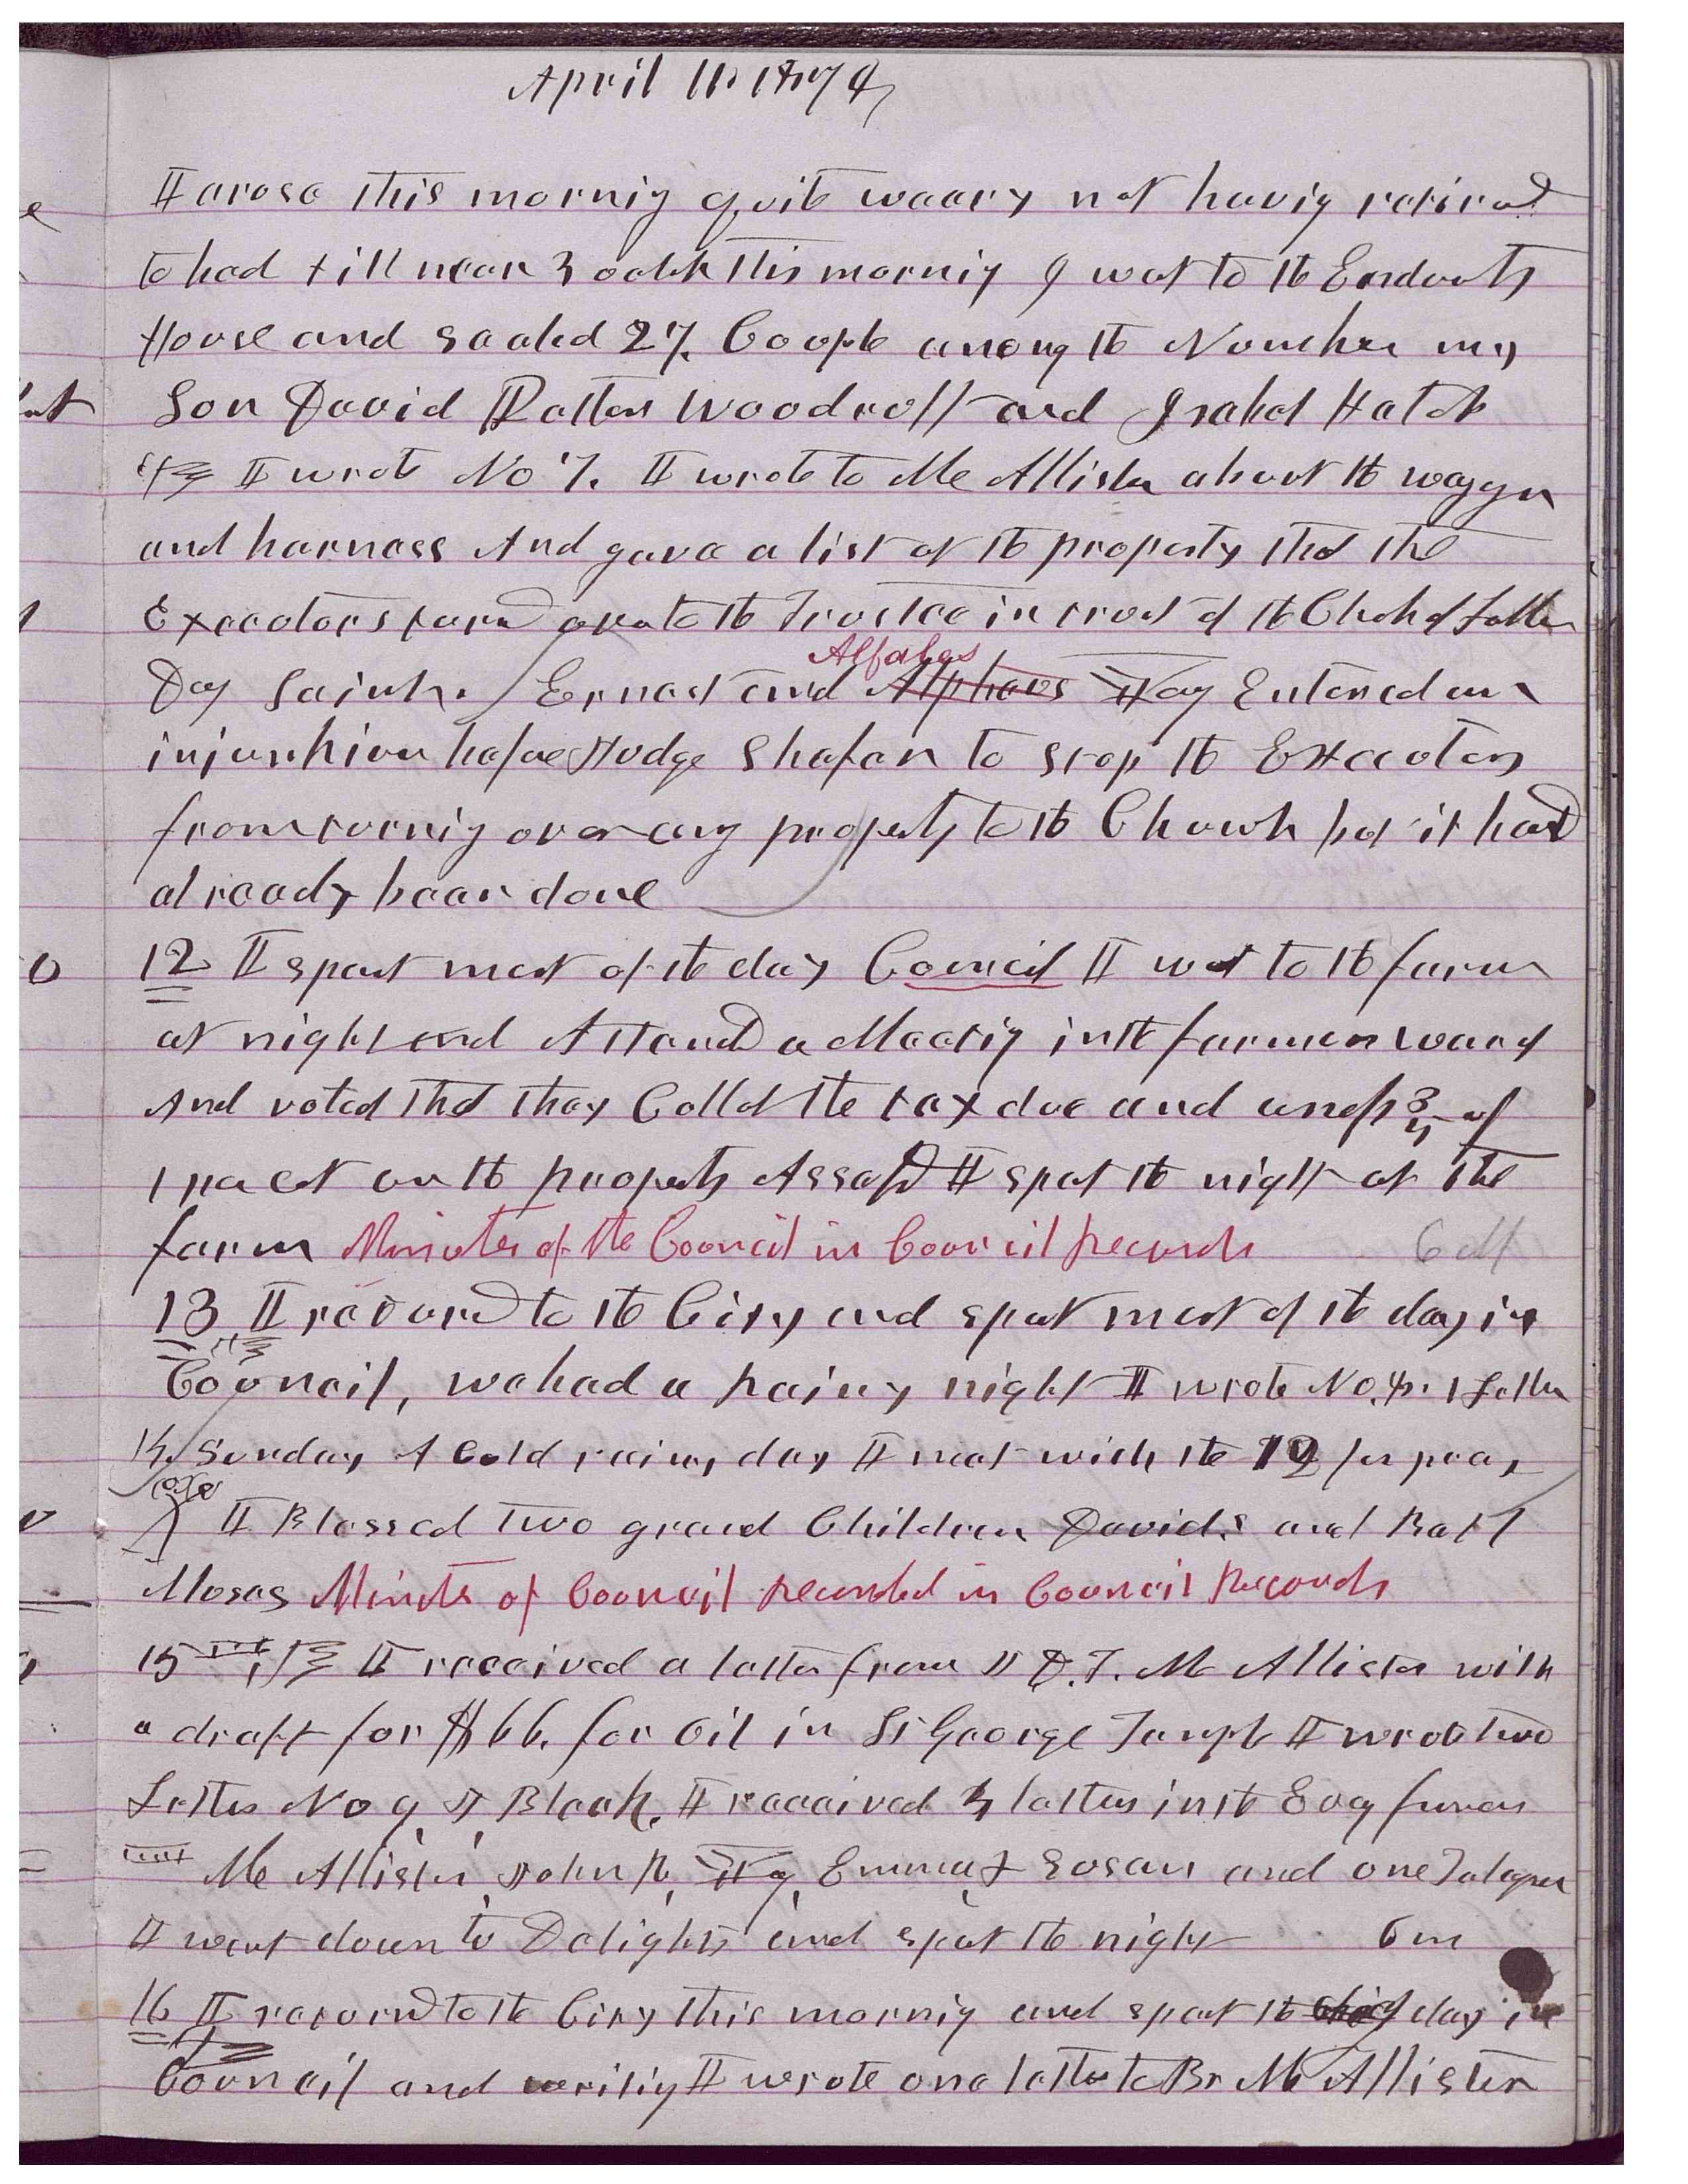 April 11. 1879
I arose this mornig quite weary not havig retired
to bed till near 3 oclok this mornig I wet to the Endowts
House and sealed 27. Couple among the Number my
Son David Patten Woodruff and Isabel Hatch
I wrote No 7. I wrote to Mc Allister about the waggn
and harness And gave a list of the property that the
Executors turnd over to the Trustee in trust of the Chch of Latter
Day Saints. Ernest and Alphaes Alfales Yog Entered an
injunktion before Judge Shafer to stop the Executors
from turnig over any property to the Church but it had
already been done
12 I spent most of the day Council I wet to the farm
at night and Attend a Meetig in the farmers ward
And voted that they Collet the tax due and
1 pr cet on the property Assesd I spet the night at the
farm Minutes of the Council in Council Records 6 M
13 I returd to the City and spet most of the day in
Council, we had a rainy night I wrote No. 4. 1 Letter
14. Sunday A Cold rainy day I met with the 12 for prayer
I Blessed Two grand Children Davids and Bell
Moses Minutes of Council recorded in Council Records
15 I received a letter from J D. T. Mc Allister with
a draft for $66. for Oil in St George Temple I wrote two
Lettes No 9, J Bleak. I received 4 lettes in the Eveg from
Mc Allister, John R, Yog, Emma & Susan and one Telegrm
I went down to Delights and spet the night 6 m
16 I returnd to the City this mornig and spet the day in
Council and writig I wrote one letter to Br Mc Allister